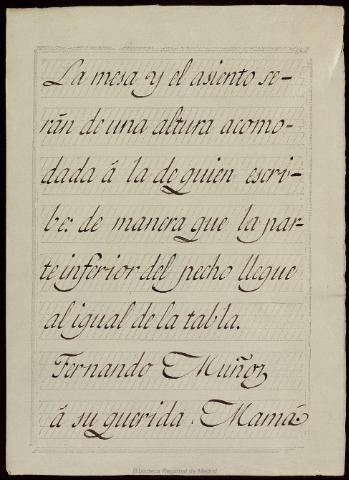 La mesa y el asiento se-
rán de una altura acomo-
dada á la de quien escri-
be: de manera que la par-
te inferior del pecho llegue
al igual de la tabla.
Fernando Muñoz
á su querida Mamá
Biblioteca Regional de Madrid